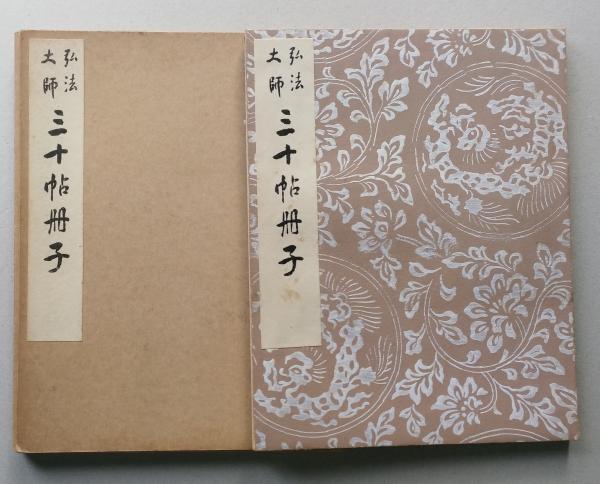 弘法
大師
三十帖冊子
弘法
大師
三十帖冊子